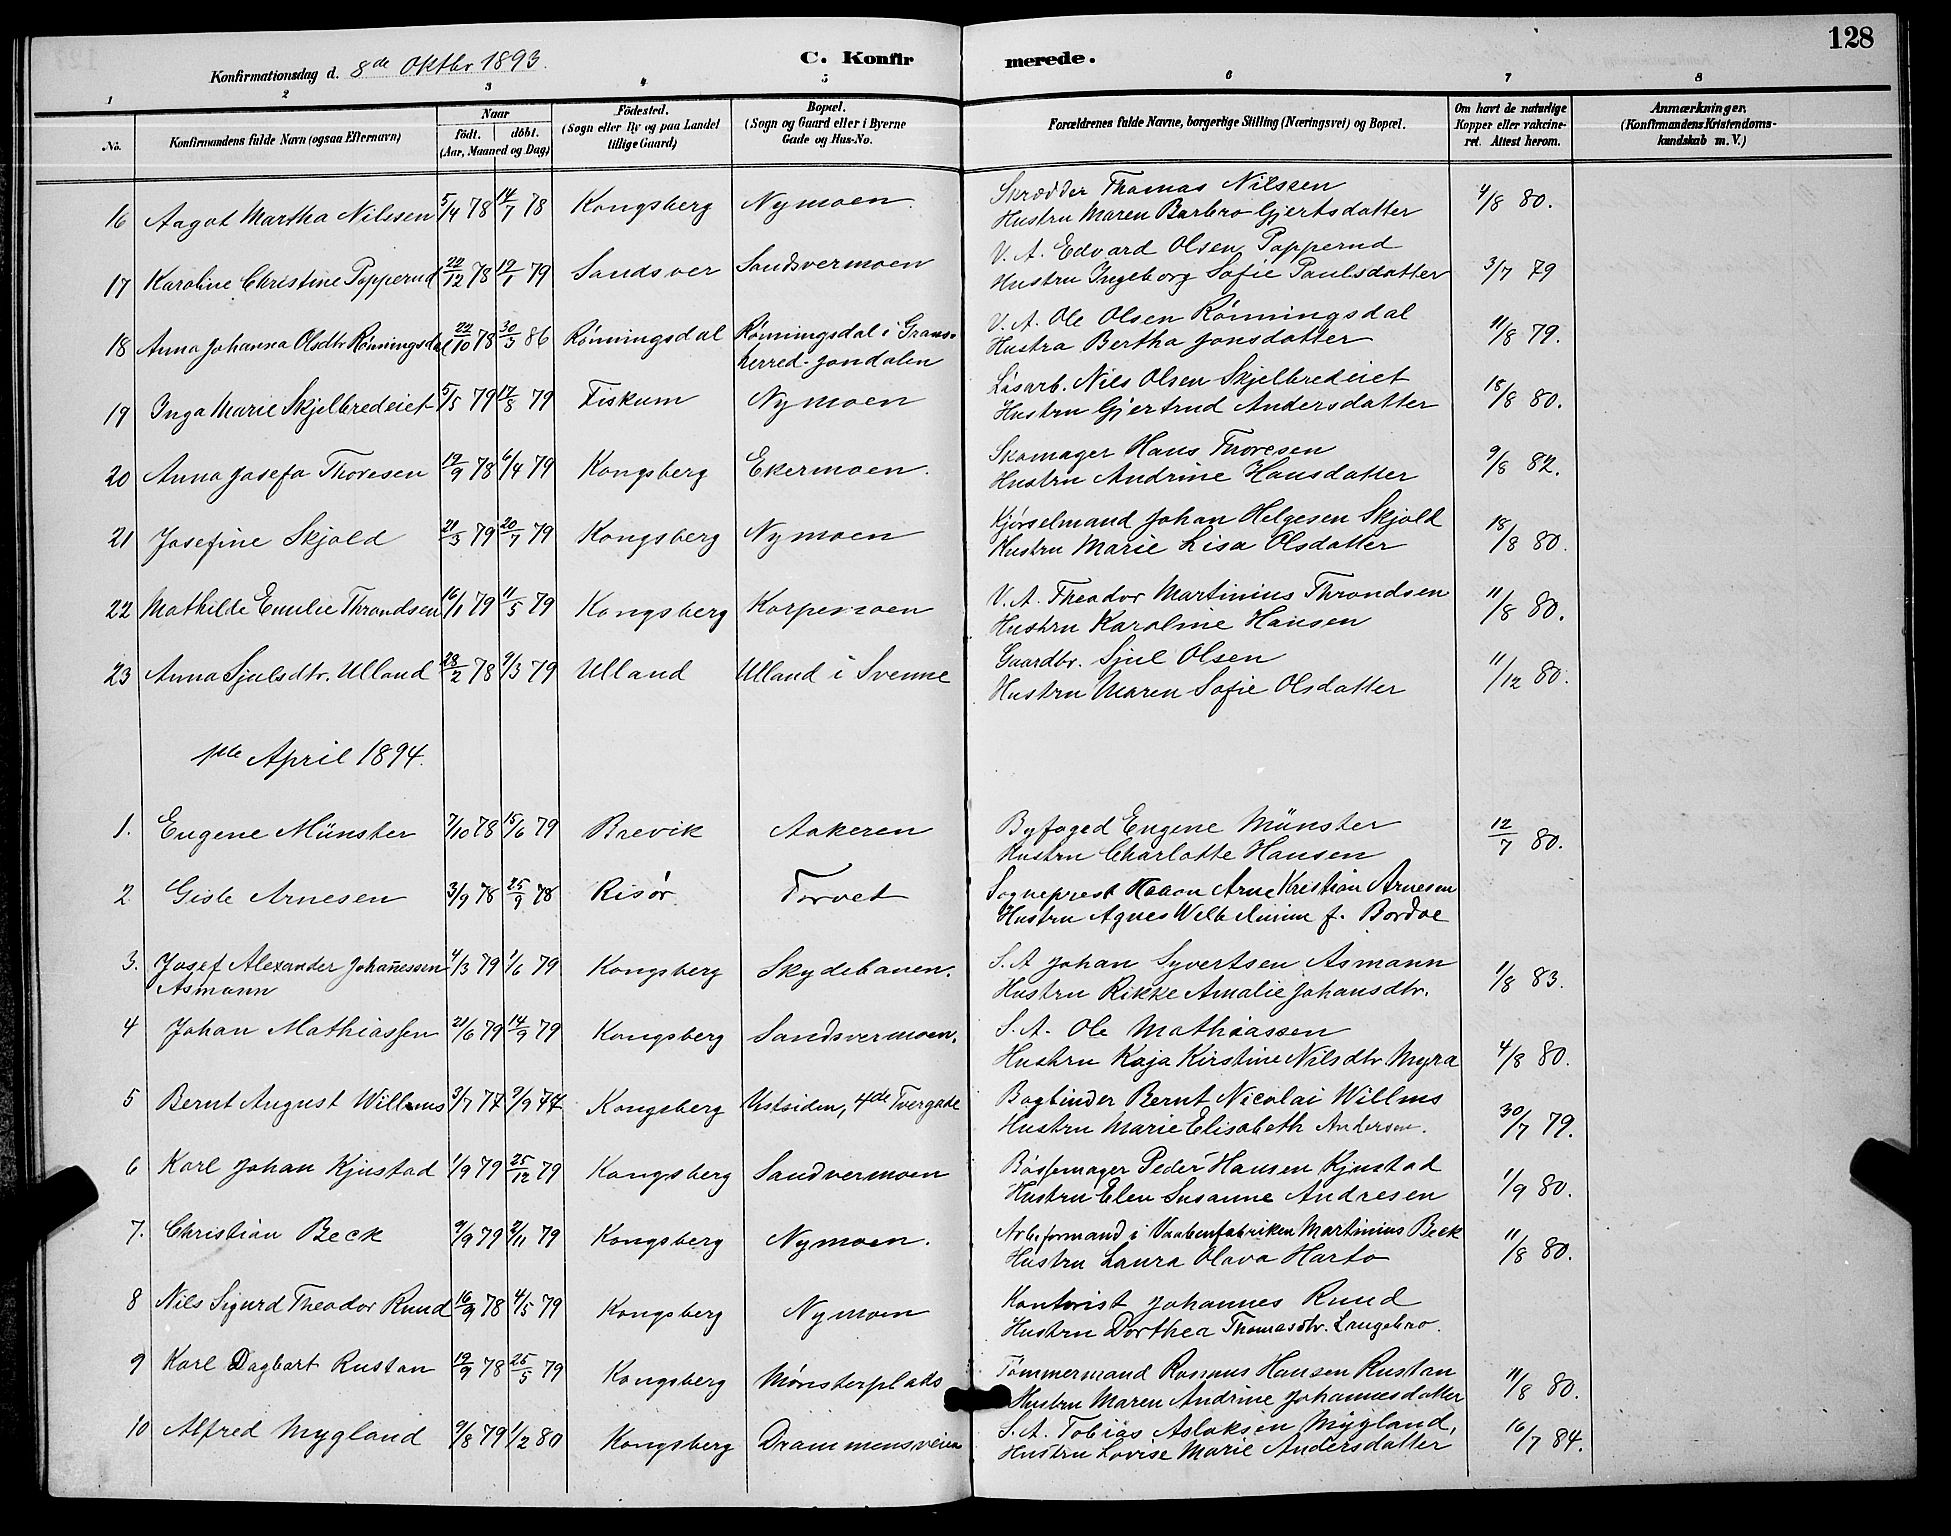 128
Konfirmationsdag d. 8de Oktbr 1893.
C. Konfirmerede.
1 2 3 4 5 6 7 8
No.
Konfirmandens fulde Navn (ogsaa Efternavn)
Naar
født. døbt.
(Aar, Maaned og Dag)
Fødested.
(Sogn eller By og paa Landet
tillige Gaard)
Bopæl.
(Sogn og Gaard eller i Byerne
Gade og Hus-No.
Forældrenes fulde Navne, borgerlige Stilling (Næringsvei) og Bopæl.
Om havt de naturlige
Kopper eller vakcine-
ret. Attest herom.
Anmærkninger.
(Konfirmandens Kristendoms-
kundskab m. V.)
16 Aagot Martha Nilssen 5/4 78 14/7 78 Kongsberg Nymoen. Skrædder Thomas Nilssen 4/8 80.
Hustru Maren Barbro Gjertsdatter
17 Karoline Christine Popperud 22/12 78 19/1 79 Sandsver Sandsvermoen V. A. Edvard Olsen Popperud 3/7 79
Hustru Ingeborg Sofie Paulsdatter
18 Anna Johanna Olsdtr Rønningsdal 22/10 78 30/3 86 Rønningsdal Rønningsdal i Grans- V. A. Ole Olsen Rønningsdal 11/8 79.
herred-Jondalen Hustru Bertha Jonsdatter
19 Inga Marie Skjelbredeiet 5/5 79 17/8 79 Fiskum Nymoen Løsarb. Nils Olsen Skjelbredeiet 18/8 80.
Hustru Gjertrud Andersdatter
20 Anna Josefa Thoresen 19/9 78 6/4 79 Kongsberg Ekermoen. Skomager Hans Thoresen 9/8 82.
Hustru Andrine Hansdatter
21 Josefine Skjold 21/5 79 20/7 79 Kongsberg Nymoen Kjørselmand Johan Helgesen Skjold 18/8 80.
Hustru Marie Lisa Olsdatter
22 Mathilde Emilie Throndsen 16/1 79 11/5 79 Kongsberg Korpemoen V. A. Theodor Martinius Throndsen 11/8 80.
Hustru Karoline Hansen
23 Anna Sjulsdtr. Ulland 28/2 78 9/3 79 Ulland Ulland i Svenne Gaardbr. Sjul Olsen 11/12 80.
Hustru Maren Sofie Olsdatter
1ste April 1894.
1. Eugene Münster 7/10 78 15/6 79 Brevik Aakeren Byfoged Eugene Münster 12/7 80.
Hustru Charlotte Hansen
2 Gisle Arnesen 3/9 78 25/9 78 Risør. Torvet Sogneprest Haaon Arne Kristian Arnesen
Hustru Agnes Wilhelmine f. Bordoe
3. Josef Alexander Johannessen 4/3 79 1/6 79 Kongsberg Skydebanen. S. A Johan Syvertsen Asmann 1/8 83.
Asmann Hustru Rikke Amalie Johansdtr.
4 Johan Mathiassen 21/6 79 14/9 79 Kongsberg Sandsvermoen. S. A. Ole Mathiassen 4/8 80.
Hustru Kaja Kirstine Nilsdtr. Myra
5 Bernt August Willms 3/7 77 9/9 77 Kongsberg Vestsiden, 4de Tvergade Bogbinder Bernt Nicolai Willms 30/7 79.
Hustru Marie Elisabeth Andersen.
6 Karl Johan Kjustad 1/9 79 25/12 79 Kongsberg Sandvermoen Bøssemager Peder Hansen Kjustad 1/9 80.
Hustru Elen Susanne Andresen
7. Christian Beck 9/9 79 2/11 79 Kongsberg Nymoen. Arb.formand i Vaabenfabriken Martinius Beck 11/8 80.
Hustru Laura Olava Harto
8 Nils Sigurd Theodor Ruud 16/9 78 4/5 79 Kongsberg Nymoen Kontorist Johannes Ruud
Hustru Dorthea Thomasdtr. Langebro.
9 Karl Dagbart Rustan 19/9 78 25/5 79 Kongsberg Mønsterplads Tømmermand Rasmus Hansen Rustan 11/8 80.
Hustru Maren Andrine Johannesdatter
10 Alfred Mygland 9/8 79 1/2 80 Kongsberg Drammensveien S. A. Tobias Aslaksen Mygland, 16/7 84.
Hustru Lovise Marie Andersdatter